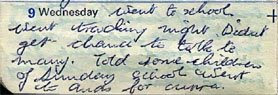 9 Wednesday went to school
went tracking night Didnt
get chance to talk to
many. Told some children
of Sunday School went
to Ands for supper.